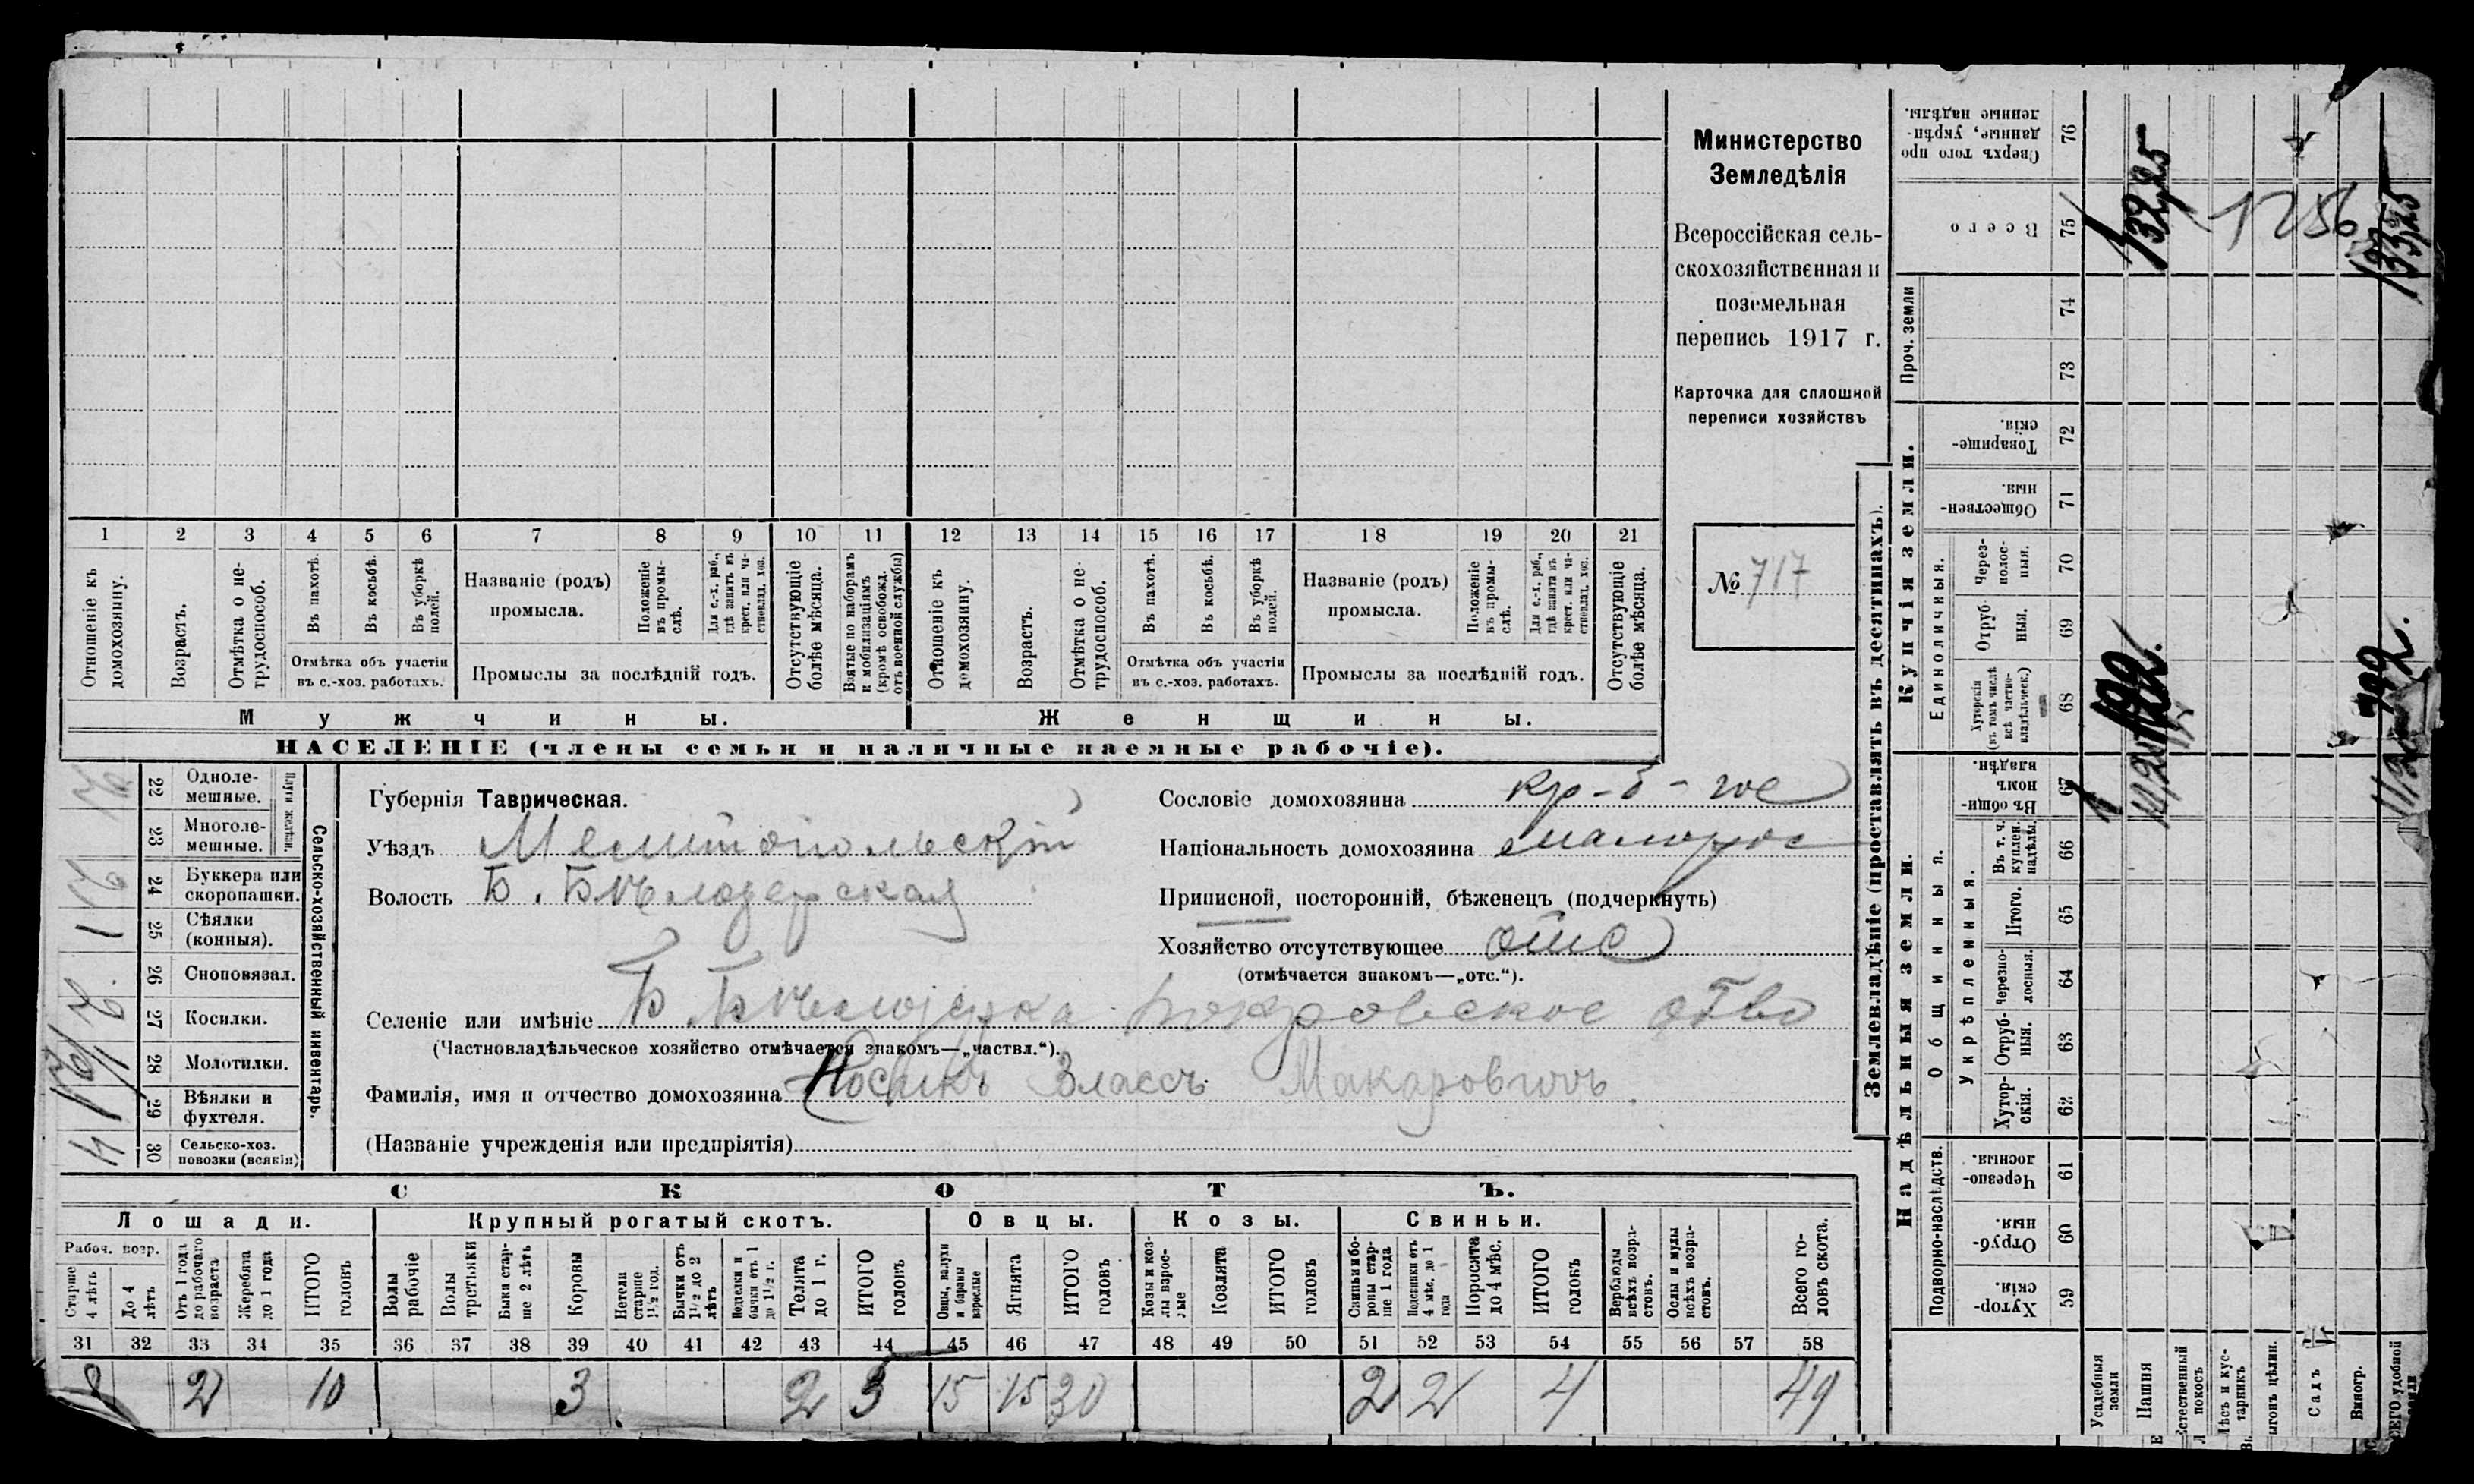 Министерство
Земледѣлія
Всероссійская сель-
скохозяйственная и
поземельная
перепись 1917 г.
Карточка для сплошной
переписи хозяйствъ
№ 717
1 2 3 4 5 6 7 8 9 10 11 12 13 14 15 16 17 18 19 20 21
Отношеніе къ домохозяину.
Возрастъ.
Отмѣтка о не-
трудоспособ.
Въ пахотѣ.
Въ косьбѣ.
Въ уборкѣ полей.
Отмѣтка объ участіи
въ с.-хоз. работахъ.
Названіе (родъ)
промысла.
Положеніе въ промы-
слѣ.
Для с.-х. раб., гдѣ занятъ въ крест. или ча-
стновлад. хоз.
Промыслы за послѣдній годъ.
Отсутствующіе болѣе мѣсяца.
Взятые по наборамъ и мобилизаціямъ (кромѣ освобожд. отъ военной службы)
Отношеніе къ домохозяину.
Возрастъ.
Отмѣтка о не-
трудоспособ.
Въ пахотѣ.
Въ косьбѣ.
Въ уборкѣ полей.
Отмѣтка объ участіи
въ с.-хоз. работахъ.
Названіе (родъ)
промысла.
Положеніе въ промы-
слѣ.
Для с.-х. раб., гдѣ занята въ крест. или ча-
стновлад. хоз.
Промыслы за послѣдній годъ.
Отсутствующіе болѣе мѣсяца.
Мужчины.
Женщины.
НАСЕЛЕНІЕ (члены семьи и наличные наемные рабочіе).
Сельско-хозяйственный инвентарь.
Плуги желѣзн.
22 Одноле-
мешные.
23 Многоле-
мешные.
24 Буккера или
скоропашки.
25 Сѣялки
(конныя). 1
26 Сноповязал.
27 Косилки. 2
28 Молотилки.
29 Вѣялки и
фухтеля. 1
30 Сельско-хоз.
повозки (всякія) 4
Губернія Таврическая.
Уѣздъ Мелитопольскій
Волость Б. Бѣлозерская
Сословіе домохозяина кр-о-гое
Національность домохозяина малорос
Приписной, посторонній, бѣженецъ (подчеркнуть)
Хозяйство отсутствующее отс
(отмѣчается знакомъ—„отс.“).
Селеніе или имѣніе Б Бѣлозерка Покровское о-тво
(Частновладѣльческое хозяйство отмѣчается знакомъ—„частвл.“).
Фамилія, имя и отчество домохозяина Носикъ Власъ Макаровичъ
(Названіе учрежденія или предпріятія)
СКОТЪ.
Лошади. Крупный рогатый скотъ. Овцы. Козы. Свиньи.
Рабоч. возр.
Старше 4 лѣтъ
До 4 лѣтъ
Отъ 1 года до рабочаго возраста
Жеребята до 1 года
ИТОГО головъ
Волы рабочіе
Волы третьяки
Быки стар-
ше 2 лѣтъ
Коровы
Нетели старше 1½ год.
Бычки отъ 1½ до 2 лѣтъ
Подтелки и бычки отъ 1 до 1½ г.
Телята до 1 г.
ИТОГО головъ
Овцы, валухи и бараны взрослые
Ягнята
ИТОГО головъ
Козы и коз-
лы взрос-
лые
Козлята
ИТОГО головъ
Свиньи и бо-
ровы стар-
ше 1 года
Подсвинки отъ 4 мѣс. до 1 года
Поросята до 4 мѣс.
ИТОГО головъ
Верблюды всѣхъ возра-
стовъ.
Ослы и мулы всѣхъ возра-
стовъ.
Всего го-
ловъ скота.
31 32 33 34 35 36 37 38 39 40 41 42 43 44 45 46 47 48 49 50 51 52 53 54 55 56 57 58
8 2 10 3 2 5 15 15 30 2 2 4 49
Землевладѣніе (проставлять въ десятинахъ).
Сверхъ того про-
данные, укрѣп-
ленные надѣлы. 76
Всего 75
Проч. земли 74 73
Купчія земли.
Товарище-
скія. 72
Обществен-
ныя. 71
Единоличныя.
Через-
полос-
ныя. 70
Отруб-
ныя. 69
Хуторскія (въ томъ числѣ всѣ частно-
владѣльческ.) 68
Надѣльныя земли.
Общинныя.
Въ общин-
номъ владѣн. 67
Укрѣпленныя.
Въ т. ч. куплен. надѣлы. 66
Итого. 65
Черезпо-
лосныя. 64
Отруб-
ныя. 63
Хутор-
скія. 62
Подворно-наслѣдств.
Черезпо-
лосныя. 61
Отруб-
ныя. 60
Хутор-
скія. 59
Усадебныя земли
Пашня
Естественный покосъ
Лѣсъ и кус-
тарникъ
Выгонъ цѣлин.
Садъ
Виногр.
ВСЕГО удобной земли
132,25
1256
133,25
1
122
1